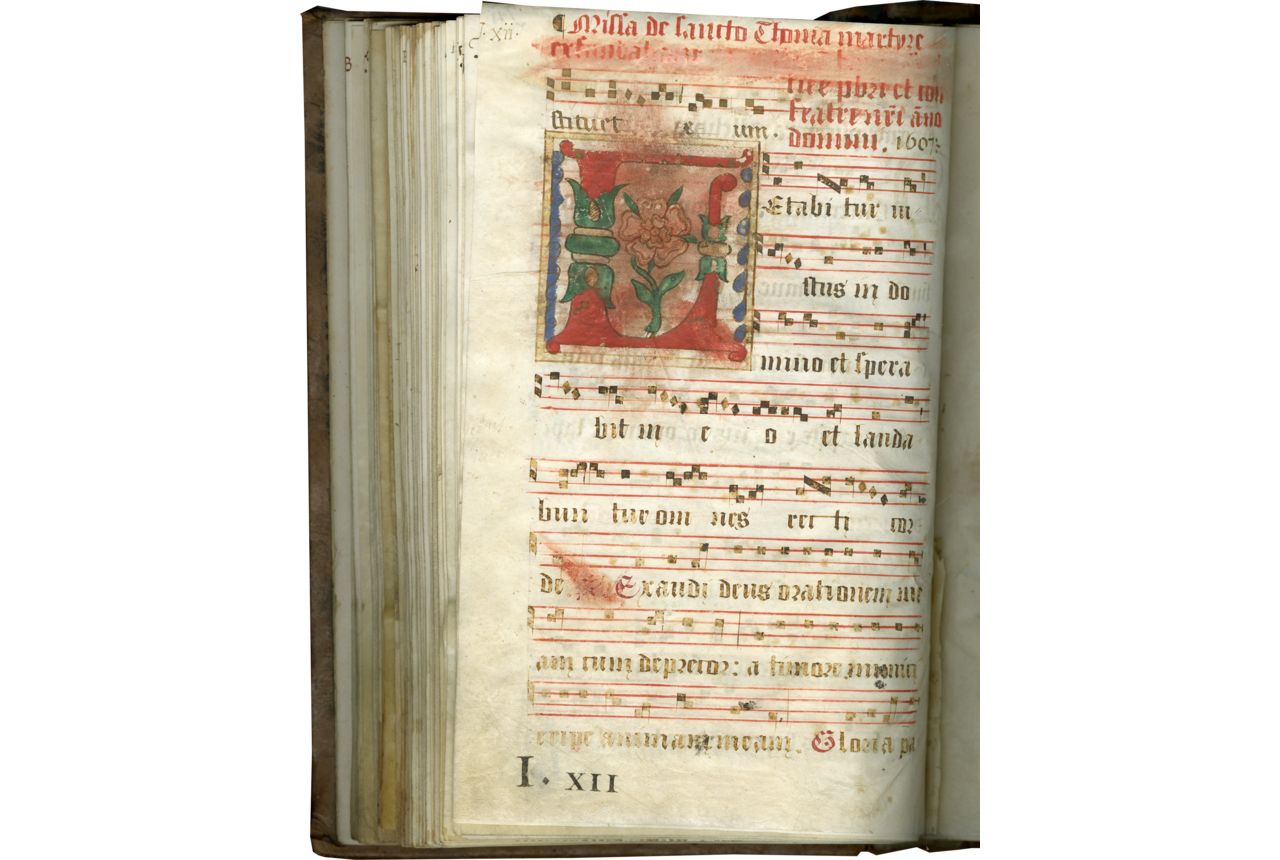 I·xii·
Missa de sancto Thoma martyre
tue pbri et con
stituet te cum.
fratre nri año
domini. 1607
Etabi tur iu
stus in do
mino et spera
bit in e o et lauda
bun tur om nes rec ti cor
de. Exaudi deus orationem me
am cum deprecor: a timore inimici
eripe animam meam. Gloria pa
I· XII